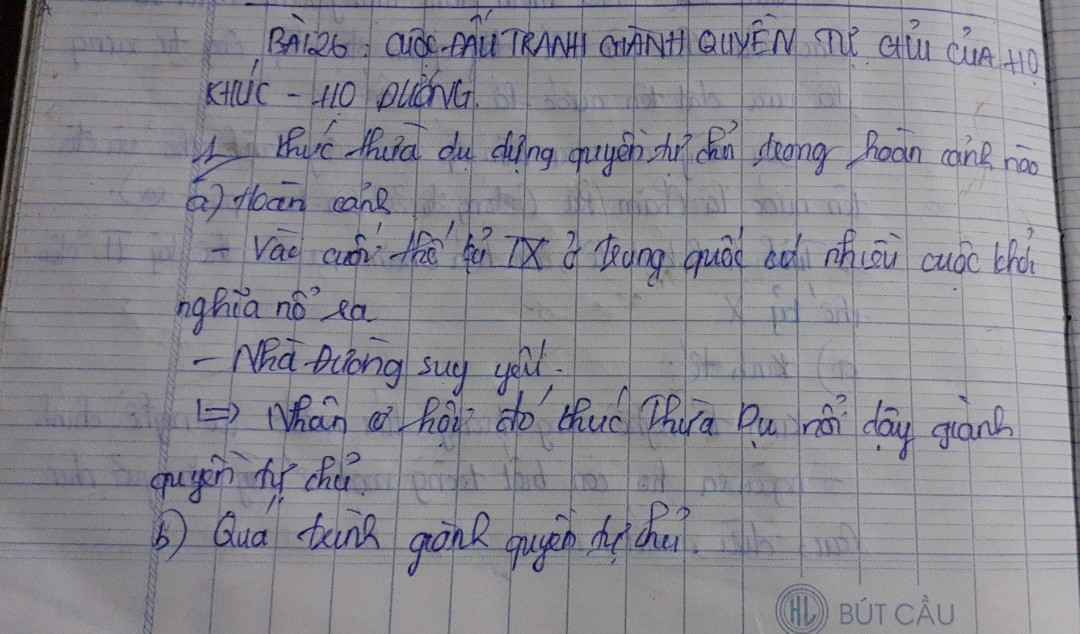 BÀI 26: CUỘC ĐẤU TRANH GIÀNH QUYỀN TỰ CHỦ CỦA HỌ
KHÚC - HỌ DƯƠNG.
1 Khúc thừa dụ dựng quyền tự chủ trong hoàn cảnh nào
a) Hoàn cảnh
- Vào cuối thế kỷ IX ở trung quốc có nhiều cuộc khởi
nghĩa nổ ra
- Nhà Đường suy yếu.
=> Nhân cơ hội đó khúc Thừa Dụ nổi dậy giành
quyền tự chủ.
b) Quá trình giành quyền tự chủ.
HL BÚT CẦU